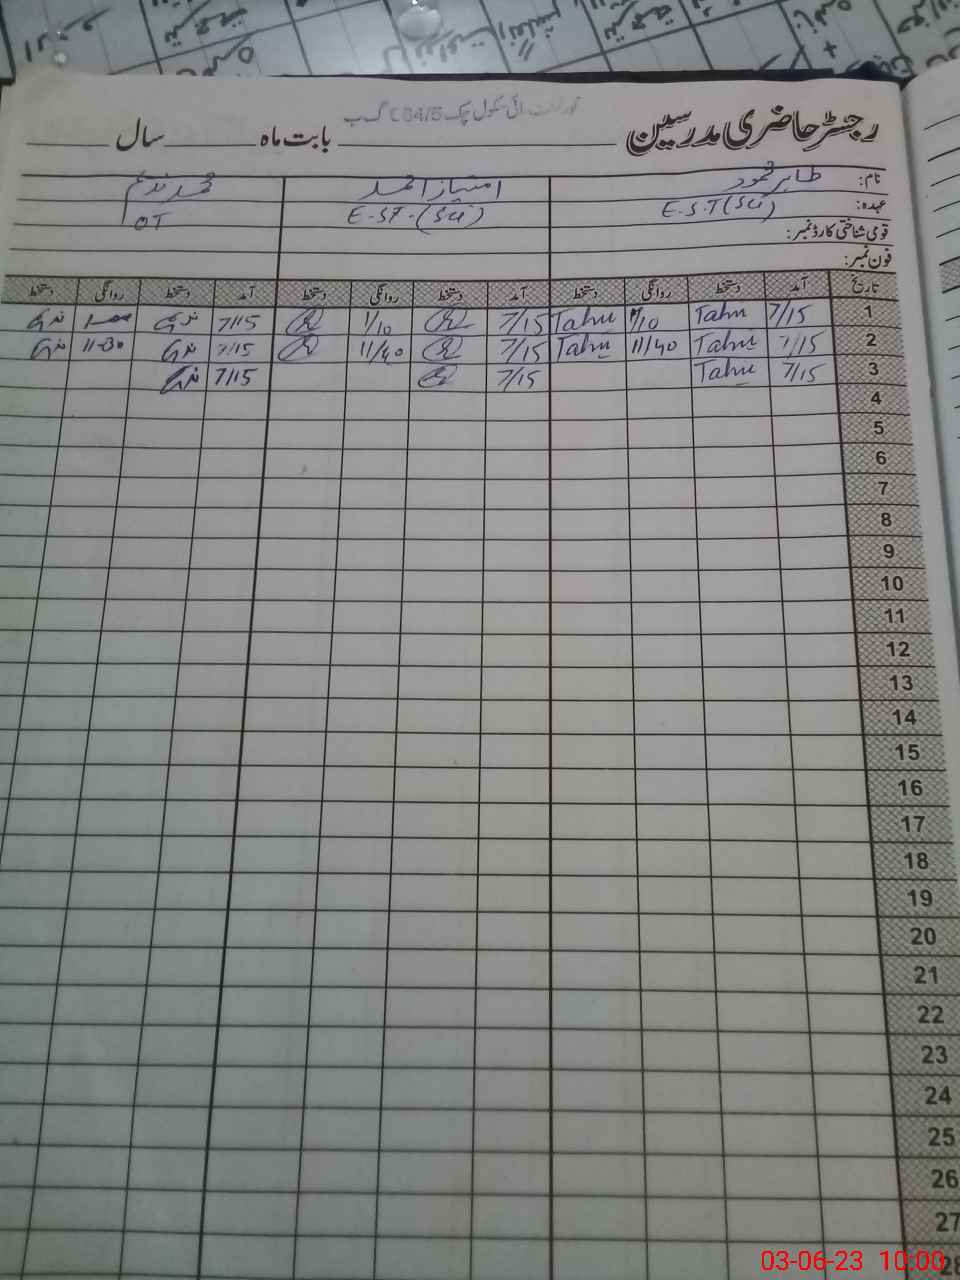 رجسٹر حاضری مدرسین بابت ماہ سال
ہائی سکول چک 64/5 گ ب
نام: طاہر محمود امتیاز احمد محمد ندیم
عہدہ: E.S.T (Sci) E-ST-(Sci) OT
قومی شناختی کارڈ نمبر:
فون نمبر:
تاریخ آمد دستخط روانگی دستخط آمد دستخط روانگی دستخط آمد دستخط روانگی دستخط
1 7/15 Tahir 1/10 Tahir 7/15 1/10 7/15 ندیم ندیم
2 7/15 Tahir 11/40 Tahir 7/15 11/40 7/15 ندیم 11-30 ندیم
3 7/15 Tahir 7/15 7/15 ندیم
4
5
6
7
8
9
10
11
12
13
14
15
16
17
18
19
20
21
22
23
24
25
26
27
28
03-06-23 10:00